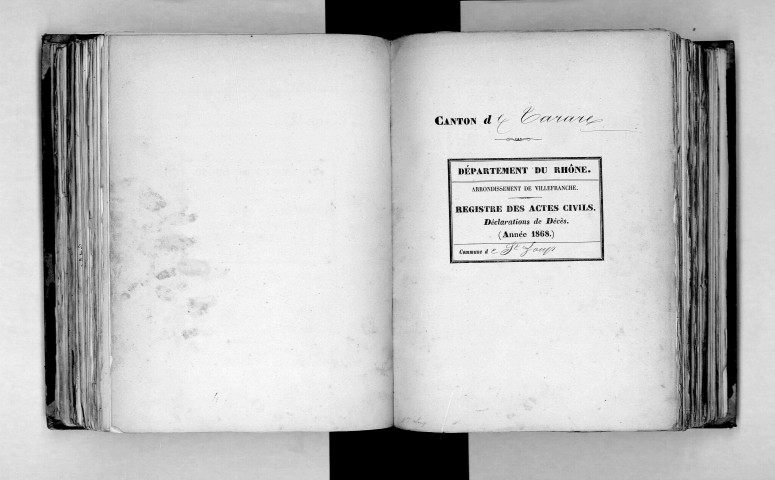 CANTON de Tarare
DÉPARTEMENT DU RHÔNE.
ARRONDISSEMENT DE VILLEFRANCHE.
REGISTRE DES ACTES CIVILS.
Déclarations de Décès.
(Année 1868.)
Commune de St Loup